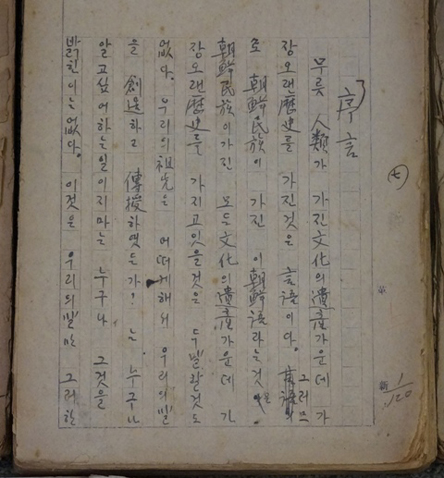 序言
무릇 人類가 가진 文化의 遺産 가운데 가
장 오랜 歷史를 가진 것은 言語이다. 그러므
로 朝鮮民族이 가진 이 朝鮮語라는 것은
朝鮮民族이 가진 모든 文化의 遺産 가운데 가
장 오랜 歷史를 가지고 잇을 것은 두 말 할 것도
없다. 우리의 祖先은 어떠게 해서 우리의 말
을 創造하고 傳授하엿든가! 는 누구나
알고 싶어하는 일이지마는 누구나 그것을
밝힌 이는 없다. 이것은 우리의 말만 그러한
1/120